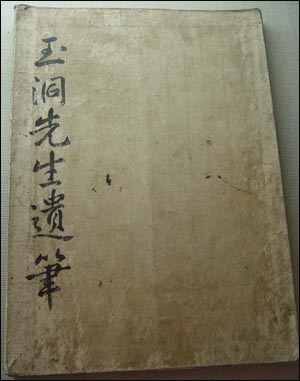 玉洞先生遺筆